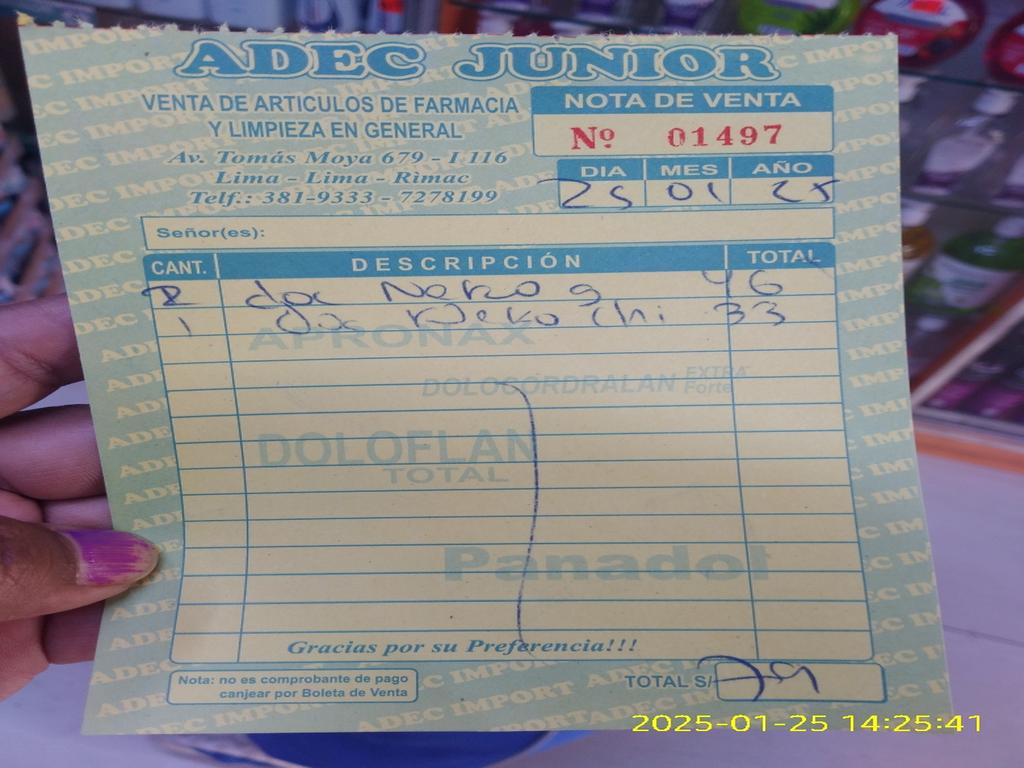 ADEC JUNIOR
VENTA DE ARTICULOS DE FARMACIA
Y LIMPIEZA EN GENERAL
Av. Tomás Moya 679 - I 116
Lima - Lima - Rimac
Telf.: 381-9333 - 7278199
NOTA DE VENTA
Nº 01497
DIA MES AÑO
25 01 25
Señor(es):
CANT. DESCRIPCIÓN TOTAL
doc Neko 9 46
1 doc Neko chi 33
APRONAX
DOLOCORDRALAN EXTRA Forte
DOLOFLAN
TOTAL
Panadol
Gracias por su Preferencia!!!
Nota: no es comprobante de pago
canjear por Boleta de Venta
TOTAL S/ 79
2025-01-25 14:25:41